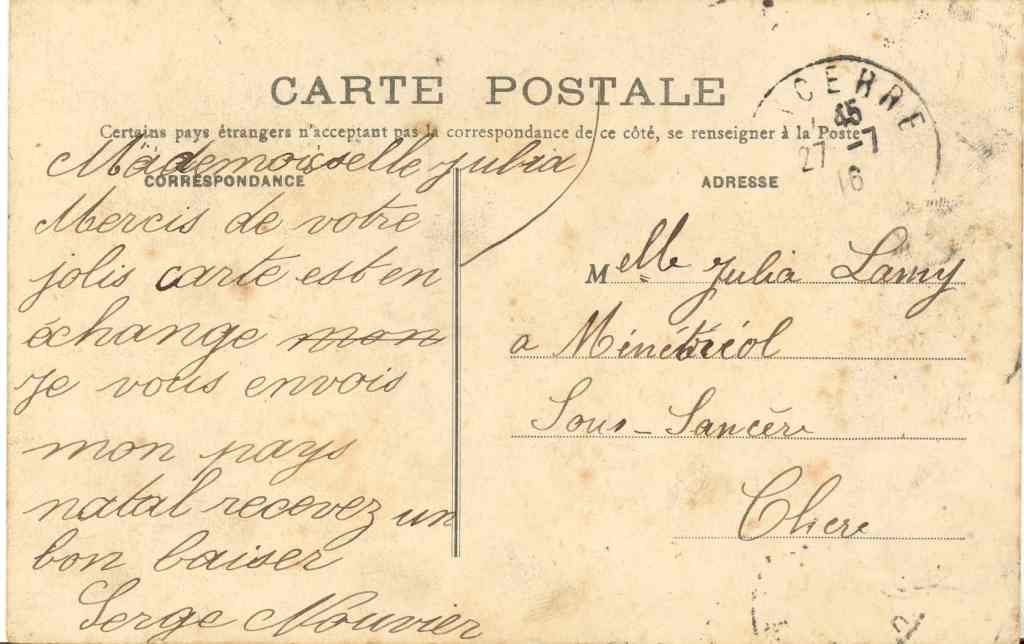 CARTE POSTALE
Certains pays étrangers n'acceptant pas la correspondance de ce côté, se renseigner à la Poste
CORRESPONDANCE
Mademoisselle Julia
Mercis de votre
jolis carte est en
échange mon
Je vous envois
mon pays
natal recevez un
bon baiser
Serge Nouvier
ADRESSE
Melle Julia Lamy
a Ménétréol
Sous-Sancère
Chere
CERRE
45
27 -7
16